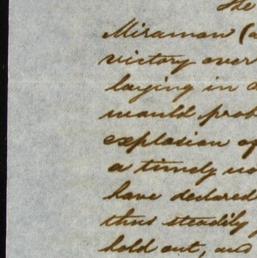 the
Miramon (
victory over
laying in a
would prob
explosion of
a timely
have declared
thus steadily
hold out, and